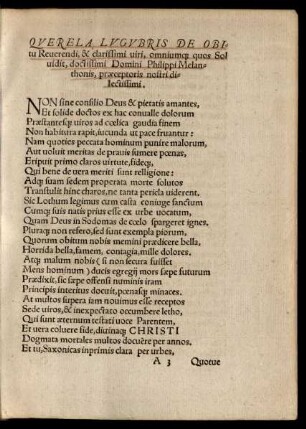 QVERELA LVGVBRIS DE OBI-
tu Reuerendi, & clarissimi uiri, omniumq; quos Sol
uidit, doctissimi Domini Philippi Melan-
thonis, præceptoris nostri di-
lectissimi.
NON sine consilio Deus & pietatis amantes,
Et solide doctos ex hac conualle dolorum
Præstantesq; uiros ad cœlica gaudia finem
Non habitura rapit, iucunda ut pace fruantur:
Nam quoties peccata hominum punire malorum,
Aut uoluit meritas de prauis sumere pœnas,
Eripuit primo claros uirtute, fideq;,
Qui bene de uera meriti sunt relligione:
Adq; suam sedem properata morte solutos
Transtulit hinc charos, ne tanta pericla uiderent.
Sic Lothum legimus cum casta coniuge sanctum
Cumq; suis natis prius esse ex urbe uocatum,
Quam Deus in Sodomas de cœlo spargeret ignes.
Pluraq; non refero, sed sunt exempla piorum,
Quorum obitum nobis memini prædicere bella,
Horrida bella, famem, contagia, mille dolores.
Atq; malum nobis (si non secura fuisset
Mens hominum) ducis egregij mors sæpe futurum
Prædixit, sic sæpe offensi numinis iram
Principis interitus docuit, pœnasq; minaces.
At multos supera iam nouimus esse receptos
Sede uiros, & inexpectato occumbere letho,
Qui sunt æternum testati uoce Parentem,
Et uera coluere fide, diuinaq; CHRISTI
Dogmata mortales multos docuêre per annos,
Et tu, Saxonicas inprimis clara per urbes,
A 3 Quotue